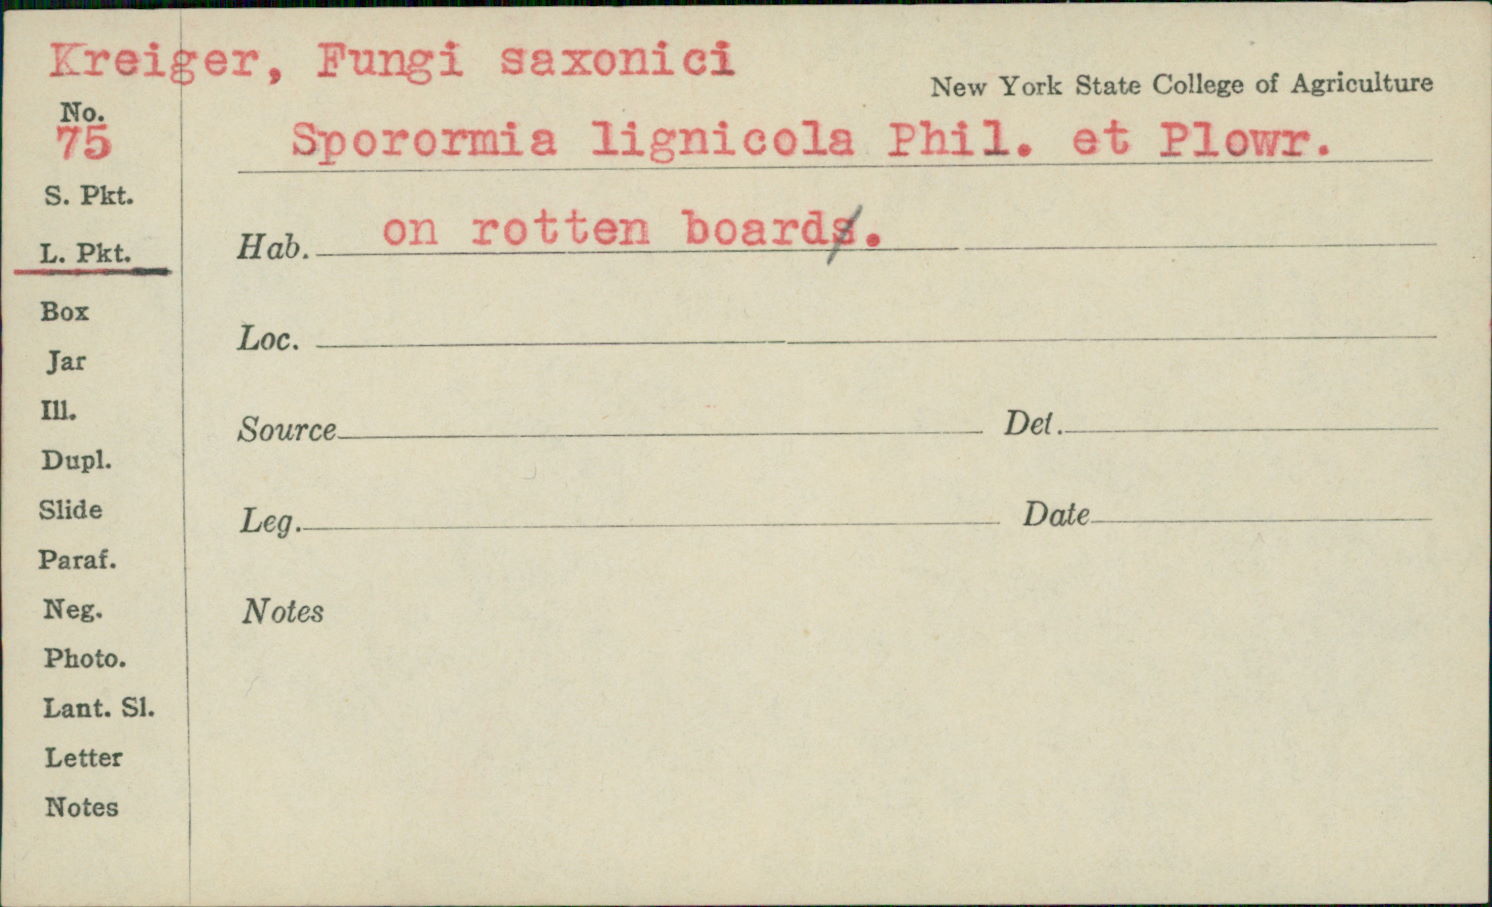 Kreiger, Fungi saxonici
New York State College of Agriculture
No.
75
Sporormia lignicola Phil. et Plowr.
S. Pkt.
L. Pkt.
Hab. on rotten boards.
Box
Loc.
Jar
Ill.
Source Det.
Dupl.
Slide
Leg. Date
Paraf.
Neg.
Notes
Photo.
Lant. Sl.
Letter
Notes